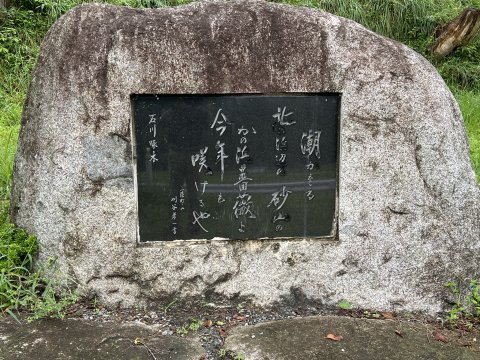 潮かをる
北の浜辺の砂山の
かの浜薔薇よ
今年も
咲けるや
石川啄木